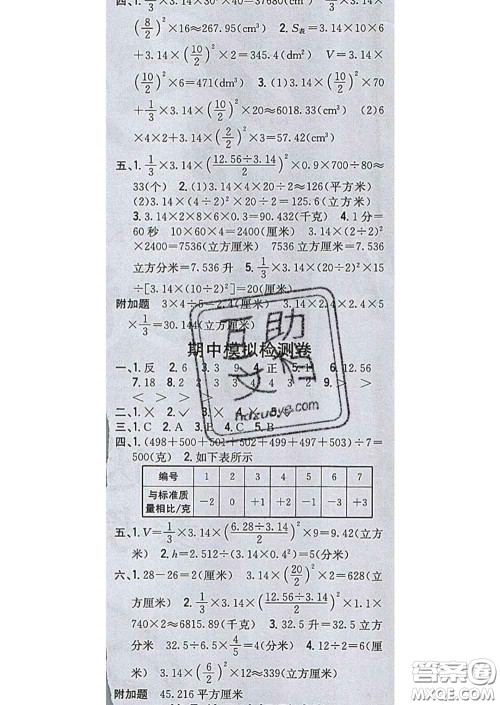 四、1. 1/3×3.14×30²×40=37680(cm³) 3.14×
(8/2)²×16≈267.95(cm³) 2. S表=3.14×10×6
+3.14×(10/2)²×2=345.4(dm²) V=3.14×
(10/2)²×6=471(dm³) 3.(1)3.14×(10/2)²×70
+1/3×3.14×(10/2)²×20≈6018.33(cm³) (2)6
×4×2+3.14×(2/2)²×3=57.42(cm³)
五、1. 1/3×3.14×(12.56÷3.14/2)²×0.9×700÷80≈
33(个) 2.(1)3.14×4×20÷2≈126(平方米)
(2)3.14×(4÷2)²×20÷2=125.6(立方米)
3. 3.14×2×8×6×0.3=90.432(千克) 4. 1分=
60秒 10×60×4=2400(厘米) 3.14×(2÷2)²
×2400=7536(立方厘米) 7536立方厘米=7.536
立方分米=7.536升 5. 1/3×3.14×(20÷2)²×15
÷[3.14×(10÷2)²]=20(厘米)
附加题 3×4÷5=2.4(厘米) 3.14×2.4×2.4×5
×1/3=30.144(立方厘米)
期中模拟检测卷
一、1.反 2.6 3.3 9 4.正 5. 6.12.56
7.18 8.2 2 4 3 2 9.<
> > > <
二、1.× 2.✓ 3.×
三、1.C 2.A 3.B 4.C 5.B
四、1.(498+500+501+502+499+497+503)÷7=
500(克) 2.如下表所示
编号 1 2 3 4 5 6 7
与标准质量相比/克 −2 0 +1 +2 −1 −3 +3
五、1. V=1/3×3.14×(6.28÷3.14/2)²×9=9.42(立方
米) 2. h=2.512÷(3.14×0.4²)=5(分米)
六、1. 28−26=2(厘米) 3.14×(20/2)²×2=628(立
方厘米) 2. 1/3×3.14×(12.56÷3.14/2)²×1.1×
740×2≈6815.89(千克) 3. 32.5升=32.5立方
分米 32.5÷6.5×4/5=4(分米) 4. 12÷2=6(厘
米) 3.14×(6/2)²×12≈339(立方厘米)
附加题 45.216平方厘米
互助文档
hdzuoye.com
答案圈
MXQE.COM